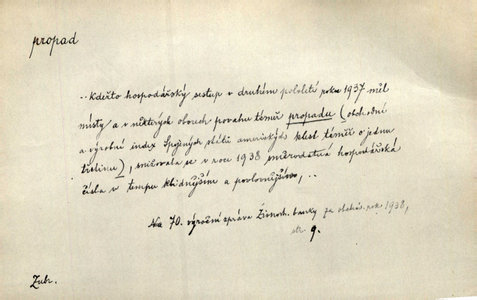 propad
.. Kdežto hospodářský sestup v druhém pololetí roku 1937 měl
místy a v některých oborech povahu téměř propadu (obchodní
a výrobní index Spojených států amerických klesl téměř o jednu
třetinu), snižovala se v roce 1938 směrodatná hospodářská
čísla v tempu klidnějším a povlovnějším, ..
70. výroční zpráva Živnob. banky za obchod. rok 1938,
str. 9.
Zubr.